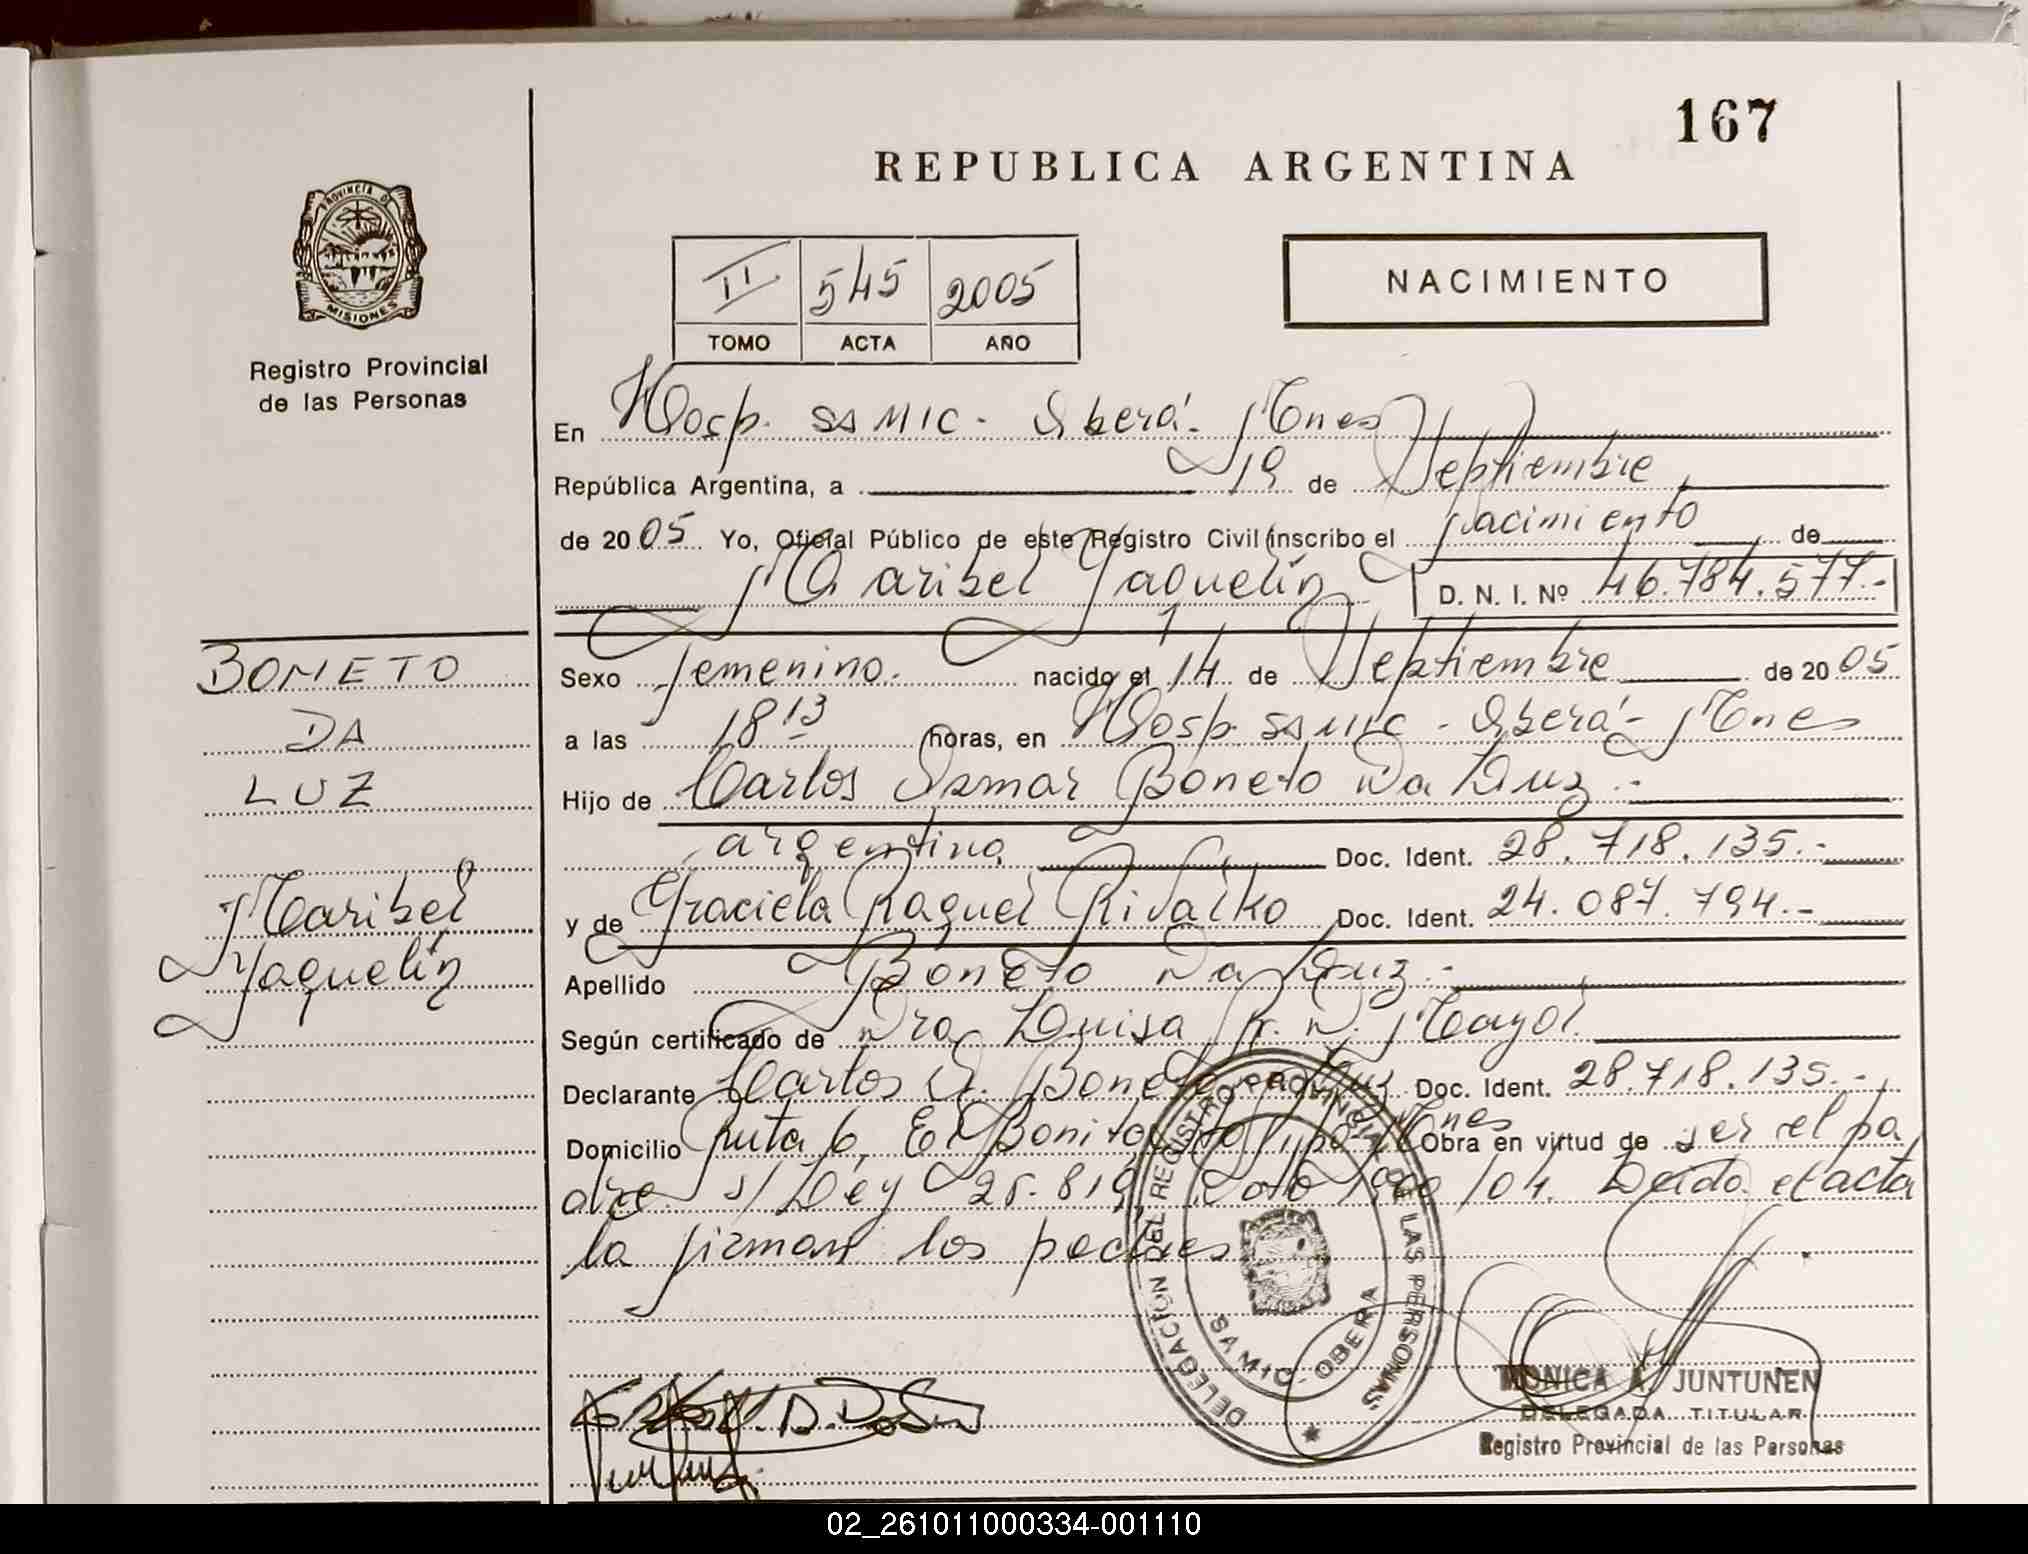 167
REPUBLICA ARGENTINA
PROVINCIA DE
MISIONES
Registro Provincial
de las Personas
II 545 2005
TOMO ACTA AÑO
NACIMIENTO
En Hosp. SAMIC - Oberá - Mnes
República Argentina, a 19 de Septiembre
de 2005 Yo, Oficial Público de este Registro Civil inscribo el Nacimiento de
Maribel Yaquelín D. N. I. Nº 46.784.577.-
BONETO
DA
LUZ
Maribel
Yaquelín
Sexo femenino. nacido el 14 de Septiembre de 2005
a las 18 13 horas, en Hosp. SAMIC - Oberá - Mnes
Hijo de Carlos Ismar Boneto Da Luz.-
argentino Doc. Ident. 28.718.135.-
y de Graciela Raquel Doc. Ident. 24.087.794.-
Apellido Boneto Da Luz.-
Según certificado de Dra Luisa
Declarante Carlos I. Boneto Da Luz Doc. Ident. 28.718.135.-
Domicilio Ruta 6, El Bonito Mnes Obra en virtud de ser el pa
dre s/ Ley 25.819, Dto 1900/04. Leída el acta
la firman los padres
DELEGACIÓN DEL REGISTRO PROVINCIAL DE LAS PERSONAS
SAMIC - OBERA
MONICA A. JUNTUNEN
DELEGADA TITULAR
Registro Provincial de las Personas
02_261011000334-001110